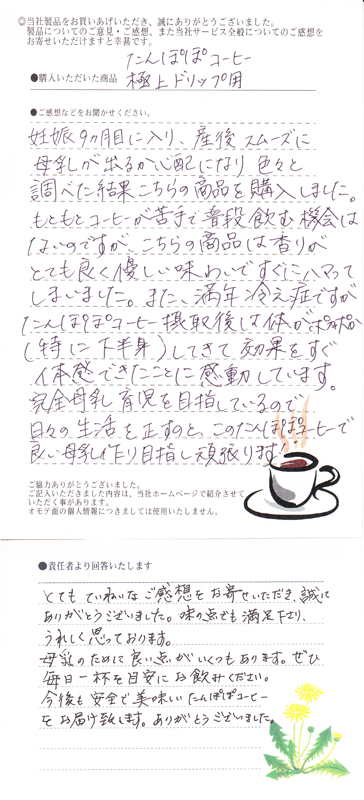 ◎当社製品をお買いあげいただき、誠にありがとうございました。
製品についてのご意見・ご感想、また当社サービス全般についてのご感想を
お寄せいただけますと幸甚です。
たんぽぽコーヒー
●購入いただいた商品 極上ドリップ用
●ご感想などをお聞かせください。
妊娠9ヵ月目に入り、産後スムーズに
母乳が出るか心配になり色々と
調べた結果こちらの商品を購入しました。
もともとコーヒーが苦手で普段飲む機会は
ないのですが、こちらの商品は香りが
とても良く優しい味わいですぐにハマって
しまいました。また、満年冷え症ですが
たんぽぽコーヒー摂取後は体がポカポカ
(特に下半身)してきて効果をすぐ
体感できたことに感動しています。
完全母乳育児を目指しているので
日々の生活を正すのと、このたんぽぽコーヒーで
良い母乳作り目指し頑張ります!
ご協力ありがとうございました。
ご記入いただきました内容は、当社ホームページで紹介させて
いただく事があります。
オモテ面の個人情報につきましては使用いたしません。
●責任者より回答いたします
とてもていねいなご感想をお寄せいただき、誠に
ありがとうございました。味の点でも満足下さり、
うれしく思っております。
母乳のために良い点がいくつもあります。ぜひ
毎日一杯を目安にお飲みください。
今後も安全で美味しいたんぽぽコーヒー
をお届け致します。ありがとうございました。